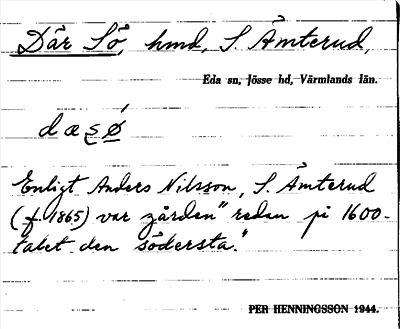 Där Sö, hmd, S. Ämterud,
Eda sn, Jösse hd, Värmlands län.
dæsǿ
Enligt Anders Nilsson, S. Ämterud
(f. 1865) var gården "redan på 1600-
talet den södersta".
PER HENNINGSSON 1944.